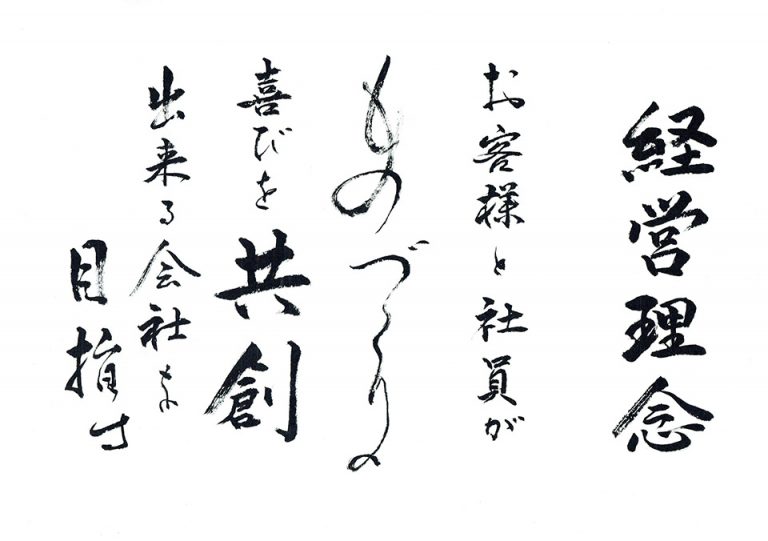 経営理念
お客様と社員が
ものづくりの
喜びを共創
出来る会社を
目指す